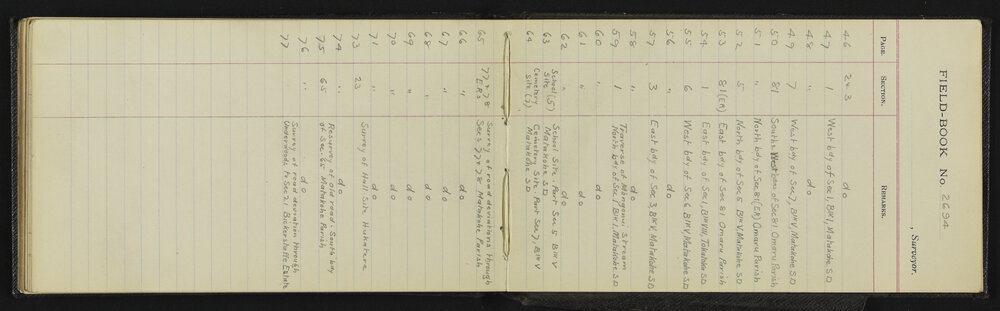 FIELD-BOOK No. 2694
, Surveyor.
PAGE. SECTION. REMARKS.
46 2 & 3 do
47 1 West bdy of Sec 1, Blk I, Matakohe S.D
48 " do
49 7 West bdy of Sec 7, Blk V, Matakohe S.D
50 81 South & West bdys of Sec 81 Omaru Parish
51 " North bdy of Sec 81 (ER) Omaru Parish
52 5 North bdy of Sec 5 Blk V, Matakohe S.D
53 81 (ER) East bdy of Sec 81 Omaru Parish
54 1 East bdy of Sec 1, Blk VIII, Tokatoka S.D
55 6 West bdy of Sec 6, Blk V, Matakohe S.D
56 " do
57 3 East bdy of Sec 3, Blk V, Matakohe S.D
58 " do
59 1 Traverse of Mangonui Stream
North bdy of Sec 1 Blk I, Matakohe S.D
60 " do
61 " do
62 " do
63 School (S) Site School Site. Part Sec 5 Blk V
Matakohe S.D
64 Cemetery Site (7) Cemetery Site Part Sec 7, Blk V
Matakohe S.D
65 77 & 78 ERs Survey of road deviations through
Secs 77 & 78 Matakohe Parish
66 " do
67 " do
68 " do
69 " do
70 " do
71 " do
73 23 Survey of Hall Site Hukatere
74 " do
75 65 Resurvey of old road, South bdy
of Sec 65 Matakohe Parish
76 " do
77 Survey of road deviation through
Underwoods to Sec 21. Bickerstaffe Estate